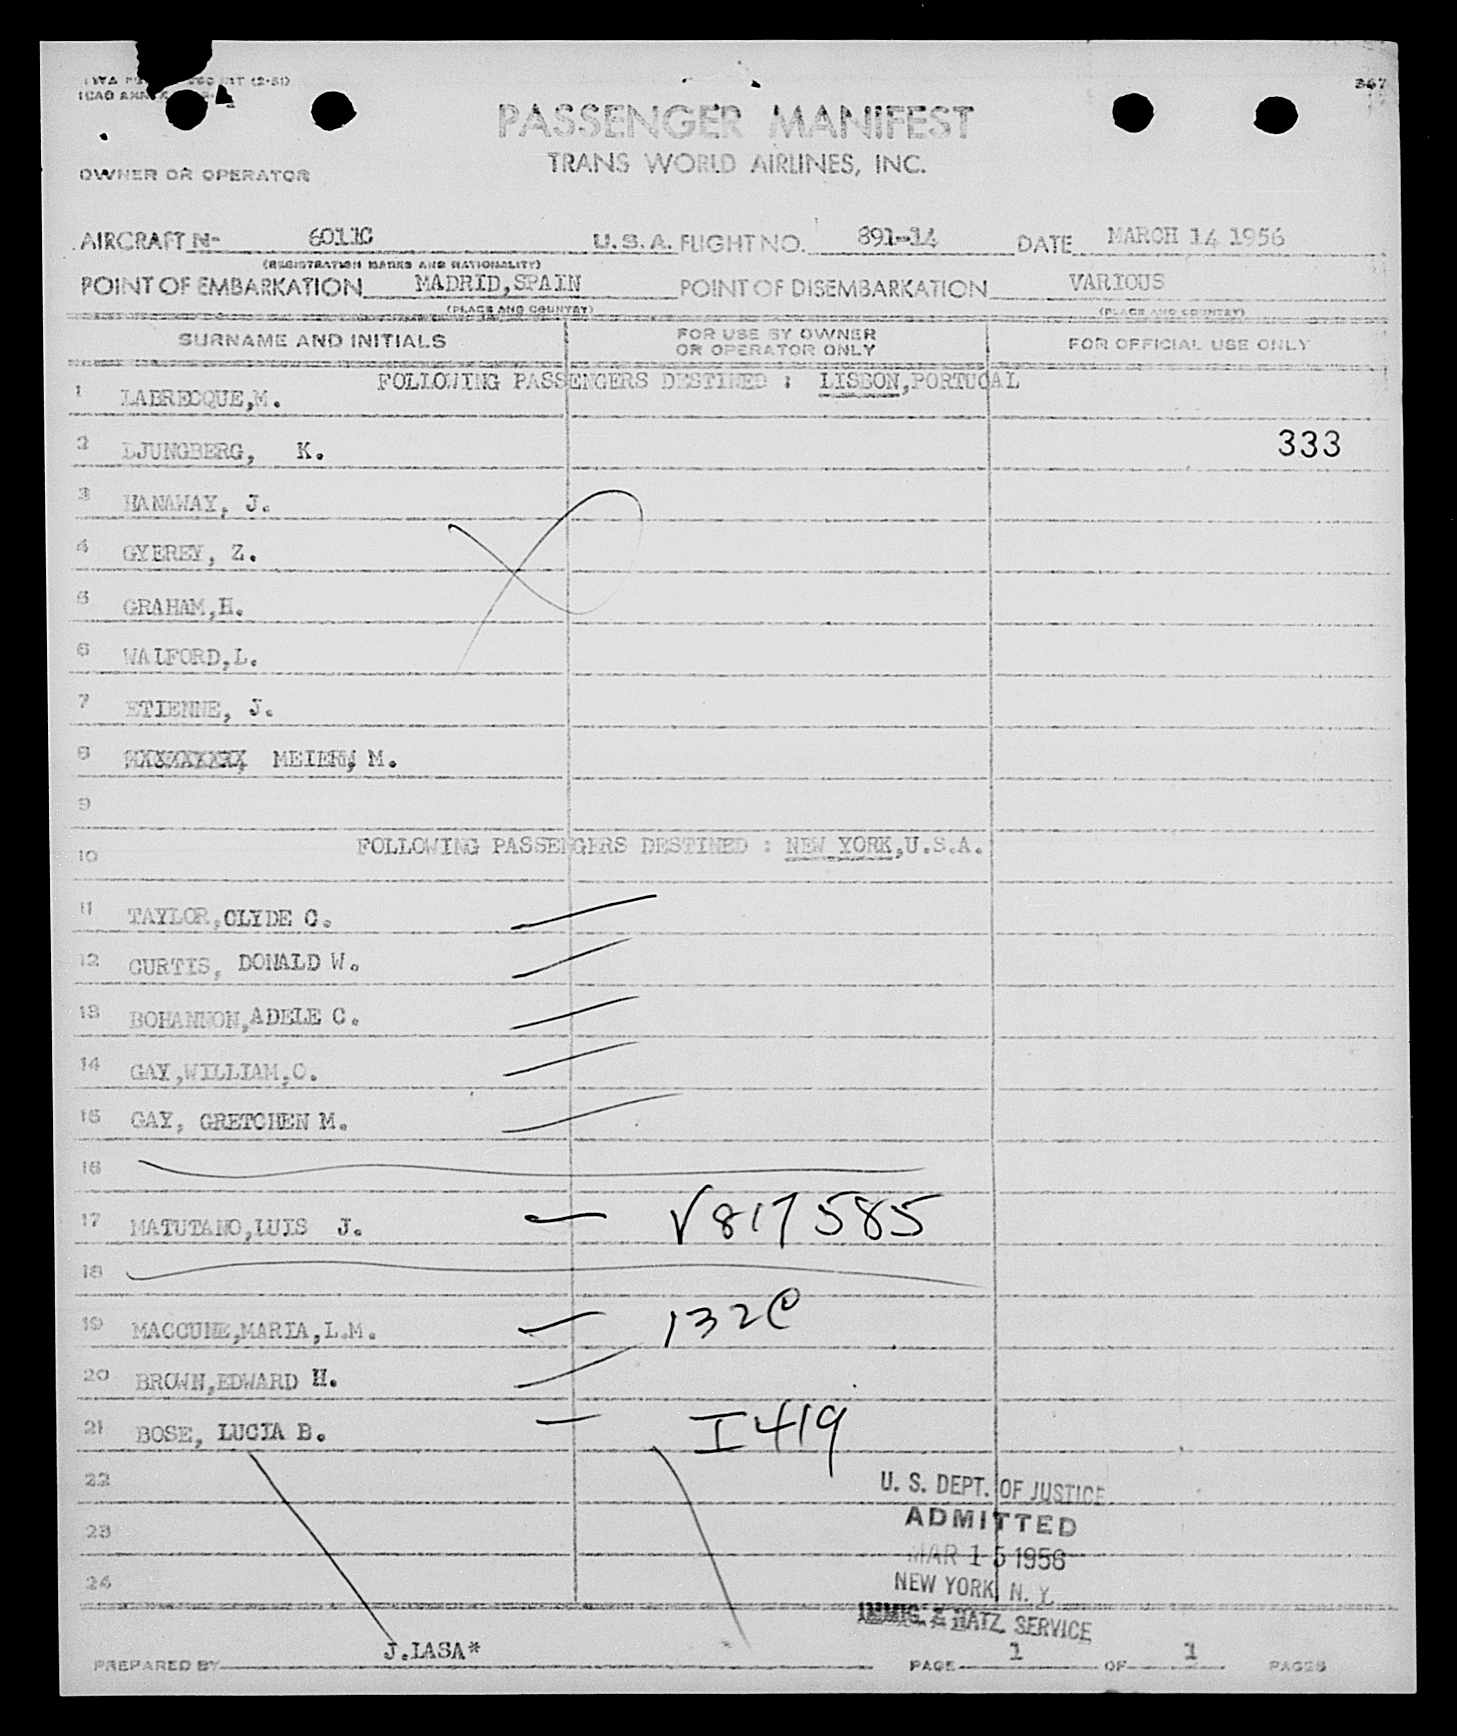 (2-51)
ICAO
367
PASSENGER MANIFEST
TRANS WORLD AIRLINES, INC.
OWNER OR OPERATOR
AIRCRAFT N- 6011C U.S.A. FLIGHT NO. 891-14 DATE MARCH 14 1956
(REGISTRATION MARKS AND NATIONALITY)
POINT OF EMBARKATION MADRID,SPAIN POINT OF DISEMBARKATION VARIOUS
(PLACE AND COUNTRY) (PLACE AND COUNTRY)
SURNAME AND INITIALS FOR USE BY OWNER OR OPERATOR ONLY FOR OFFICIAL USE ONLY
FOLLOWING PASSENGERS DESTINED : LISBON,PORTUGAL
1 LABRECQUE,M.
2 LJUNGBERG, K. 333
3 HANAWAY, J.
4 GYEREY, Z.
5 GRAHAM,H.
6 WALFORD,L.
7 ETIENNE, J.
8 MEIERN, M.
9
10 FOLLOWING PASSENGERS DESTINED : NEW YORK,U.S.A.
11 TAYLOR,CLYDE C.
12 CURTIS, DONALD W.
13 BOHANNON,ADELE C.
14 GAY,WILLIAM,O.
15 GAY, GRETCHEN M.
16
17 MATUTANO,LUIS J. — V817585
18
19 MACCUNE,MARIA,L.M. — 132C
20 BROWN,EDWARD H.
21 BOSE, LUCIA B. — I419
22
23
24
U. S. DEPT. OF JUSTICE
ADMITTED
MAR 15 1956
NEW YORK, N. Y.
IMMIG. & NATZ. SERVICE
PREPARED BY J.LASA* PAGE 1 OF 1 PAGES